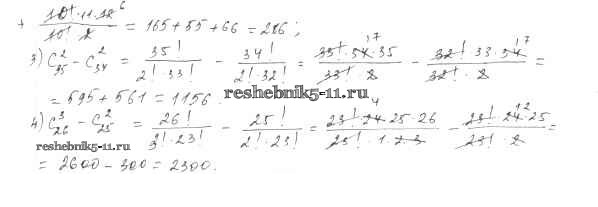 + 10! · 11 · 12 6 / 10! · 2 = 165 + 55 + 66 = 286 ;
3) C²₃₅ - C²₃₄ = 35! / 2! · 33! - 34! / 2! · 32! = 33! · 34 17 · 35 / 33! · 2 - 32! · 33 · 34 17 / 32! · 2 =
= 595 + 561 = 1156.
reshebnik5-11.ru
4) C³₂₆ - C²₂₅ = 26! / 3! · 23! - 25! / 2! · 23! = 23! · 24 4 · 25 · 26 / 23! · 1 · 2 · 3 - 23! · 24 12 · 25 / 23! · 2 =
reshebnik5-11.ru
= 2600 - 300 = 2300.